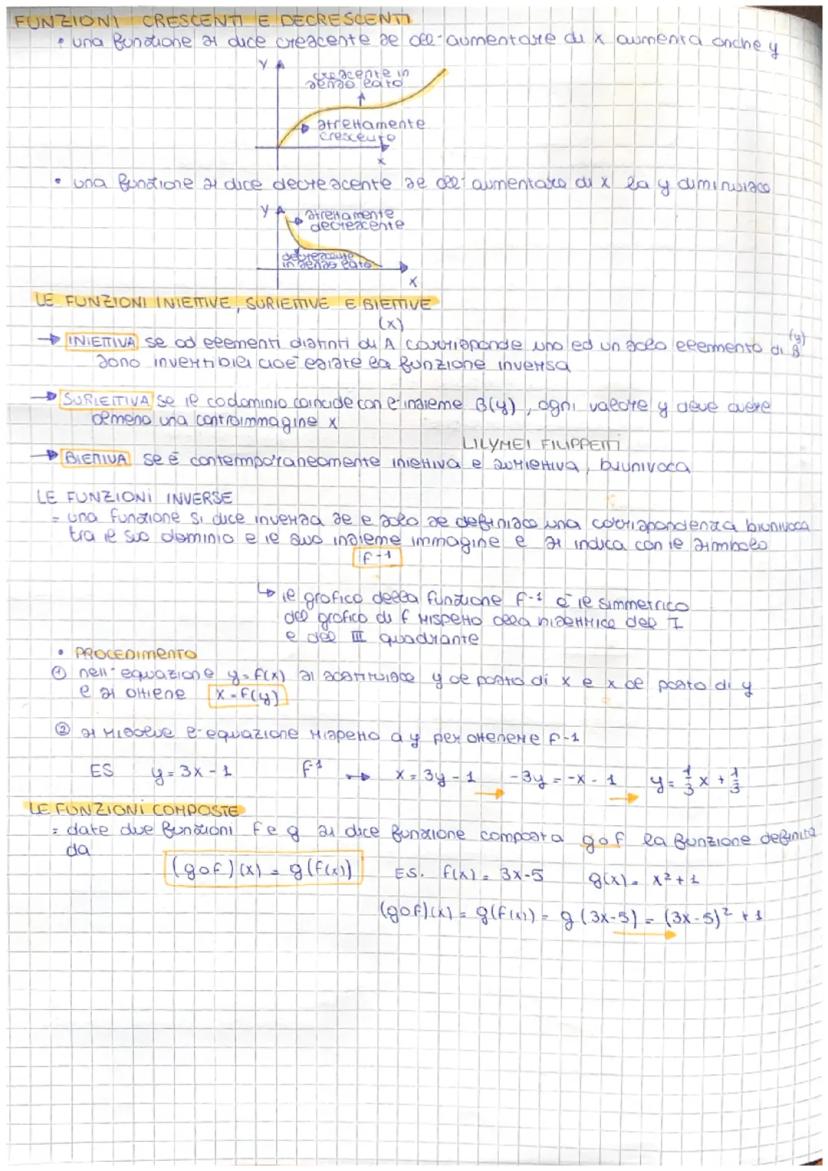 FUNZIONI CRESCENTI E DECRESCENTI
• una funzione si dice crescente se all'aumentare di x aumenta anche y
y
crescente in
senso lato
strettamente
crescente
x
• una funzione si dice decrescente se all'aumentare di x la y diminuisce
y
strettamente
decrescente
decrescente
in senso lato
x
LE FUNZIONI INIETTIVE, SURIETTIVE E BIETTIVE
(x)
→ INIETTIVA se ad elementi distinti di A corrisponde uno ed un solo elemento di B (y)
sono invertibili cioè esiste la funzione inversa
→ SURIETTIVA se il codominio coincide con l'insieme B(y), ogni valore y deve avere
almeno una controimmagine x
LILYMEI FILIPPETTI
→ BIETTIVA se è contemporaneamente iniettiva e suriettiva, biunivoca
LE FUNZIONI INVERSE
= una funzione si dice inversa se e solo se definisce una corrispondenza biunivoca
tra il suo dominio e il suo insieme immagine e si indica con il simbolo
f-1
↳ il grafico della funzione f-1 è il simmetrico
del grafico di f rispetto alla bisettrice del I
e del III quadrante
• PROCEDIMENTO
① nell'equazione y=f(x) si sostituisce y al posto di x e x al posto di y
e si ottiene x=f(y)
② si risolve l'equazione rispetto a y per ottenere f-1
ES y=3x-1 f-1 → x=3y-1 → -3y=-x-1 → y=1/3x+1/3
LE FUNZIONI COMPOSTE
= date due funzioni f e g si dice funzione composta gof la funzione definita
da
(gof)(x) = g(f(x)) ES. f(x)=3x-5 g(x)=x²+1
(gof)(x) = g(f(x)) = g(3x-5) = (3x-5)²+1